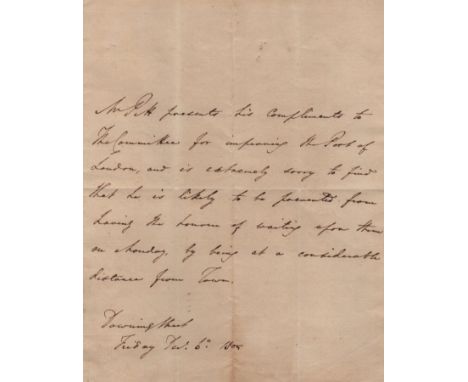 Mr Pitt presents his compliments to
The Committee for improving the Port of
London, and is extremely sorry to find
that he is likely to be prevented from
having the honour of waiting upon them
on Monday, by being at a considerable
distance from Town.
Downing Street
Friday 6th